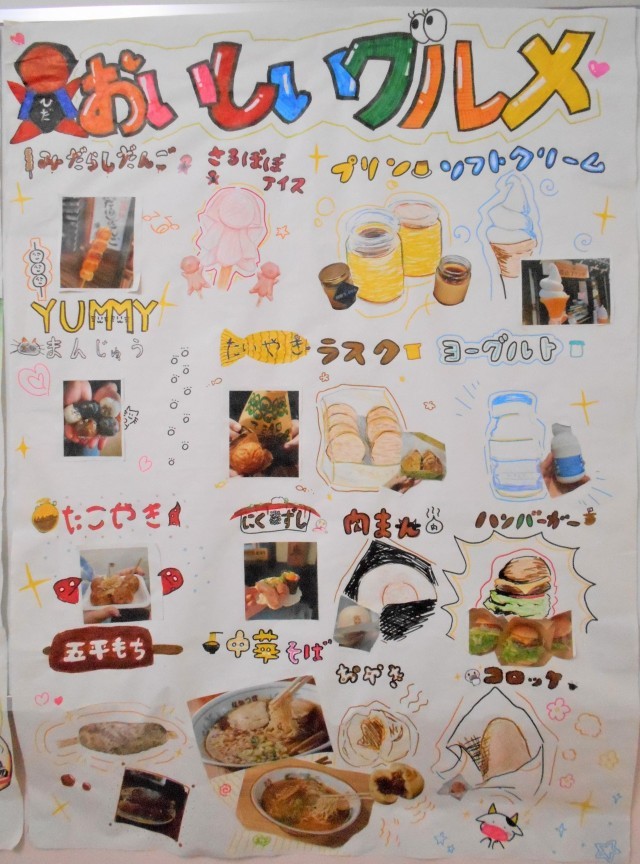 ひだ
おいしいグルメ
みだらしだんご
さるぼぼ
アイス
プリン
ソフトクリーム
YUMMY
まんじゅう
たいやき
ラスク
ヨーグルト
たこやき
にくずし
肉まん
ハンバーガー
五平もち
中華そば
おやき
コロッケ